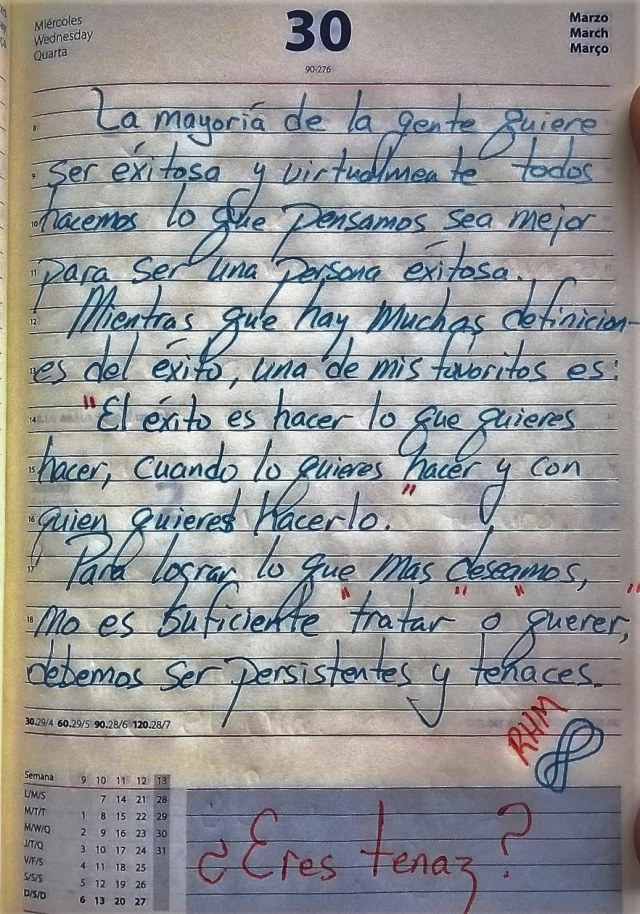 Miércoles
Wednesday
Quarta
30
90-276
Marzo
March
Março
8
La mayoriá de la gente quiere
9 ser éxitosa y virtualmente todos
10 hacemos lo que pensamos sea mejor
11 para ser una persona éxitosa.
12 Mientras que hay muchas definicion-
13 es del éxito, una de mis favoritos es:
14 "El éxito es hacer lo que quieres
15 hacer, cuando lo quieres hacer y con
16 quien quieres hacerlo."
17 Para lograr lo que mas deseamos,
18 no es suficiente "tratar" o "querer,"
debemos ser persistentes y tenaces.
30.29/4 60.29/5 90.28/6 120.28/7
RHM
Semana 9 10 11 12 13
L/M/S 7 14 21 28
M/T/T 1 8 15 22 29
M/W/Q 2 9 16 23 30
J/T/Q 3 10 17 24 31
V/F/S 4 11 18 25
S/S/S 5 12 19 26
D/S/D 6 13 20 27
¿Eres tenaz?